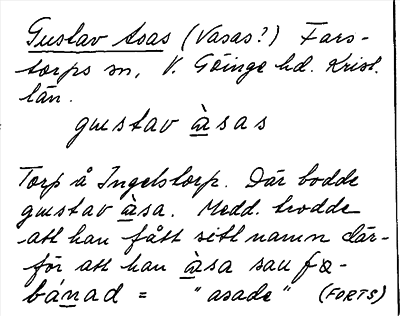 Gustav Asas (Vasas?) Fars-
torps sn, V. Göinge hd. Krist.
län.
gustav àsas
Torp å Ingelstorp. Där bodde
gustav àsa. Medd. trodde
att han fått sitt namn där-
för att han àsa sau fɑ-
bánad = "asade" (FORTS)